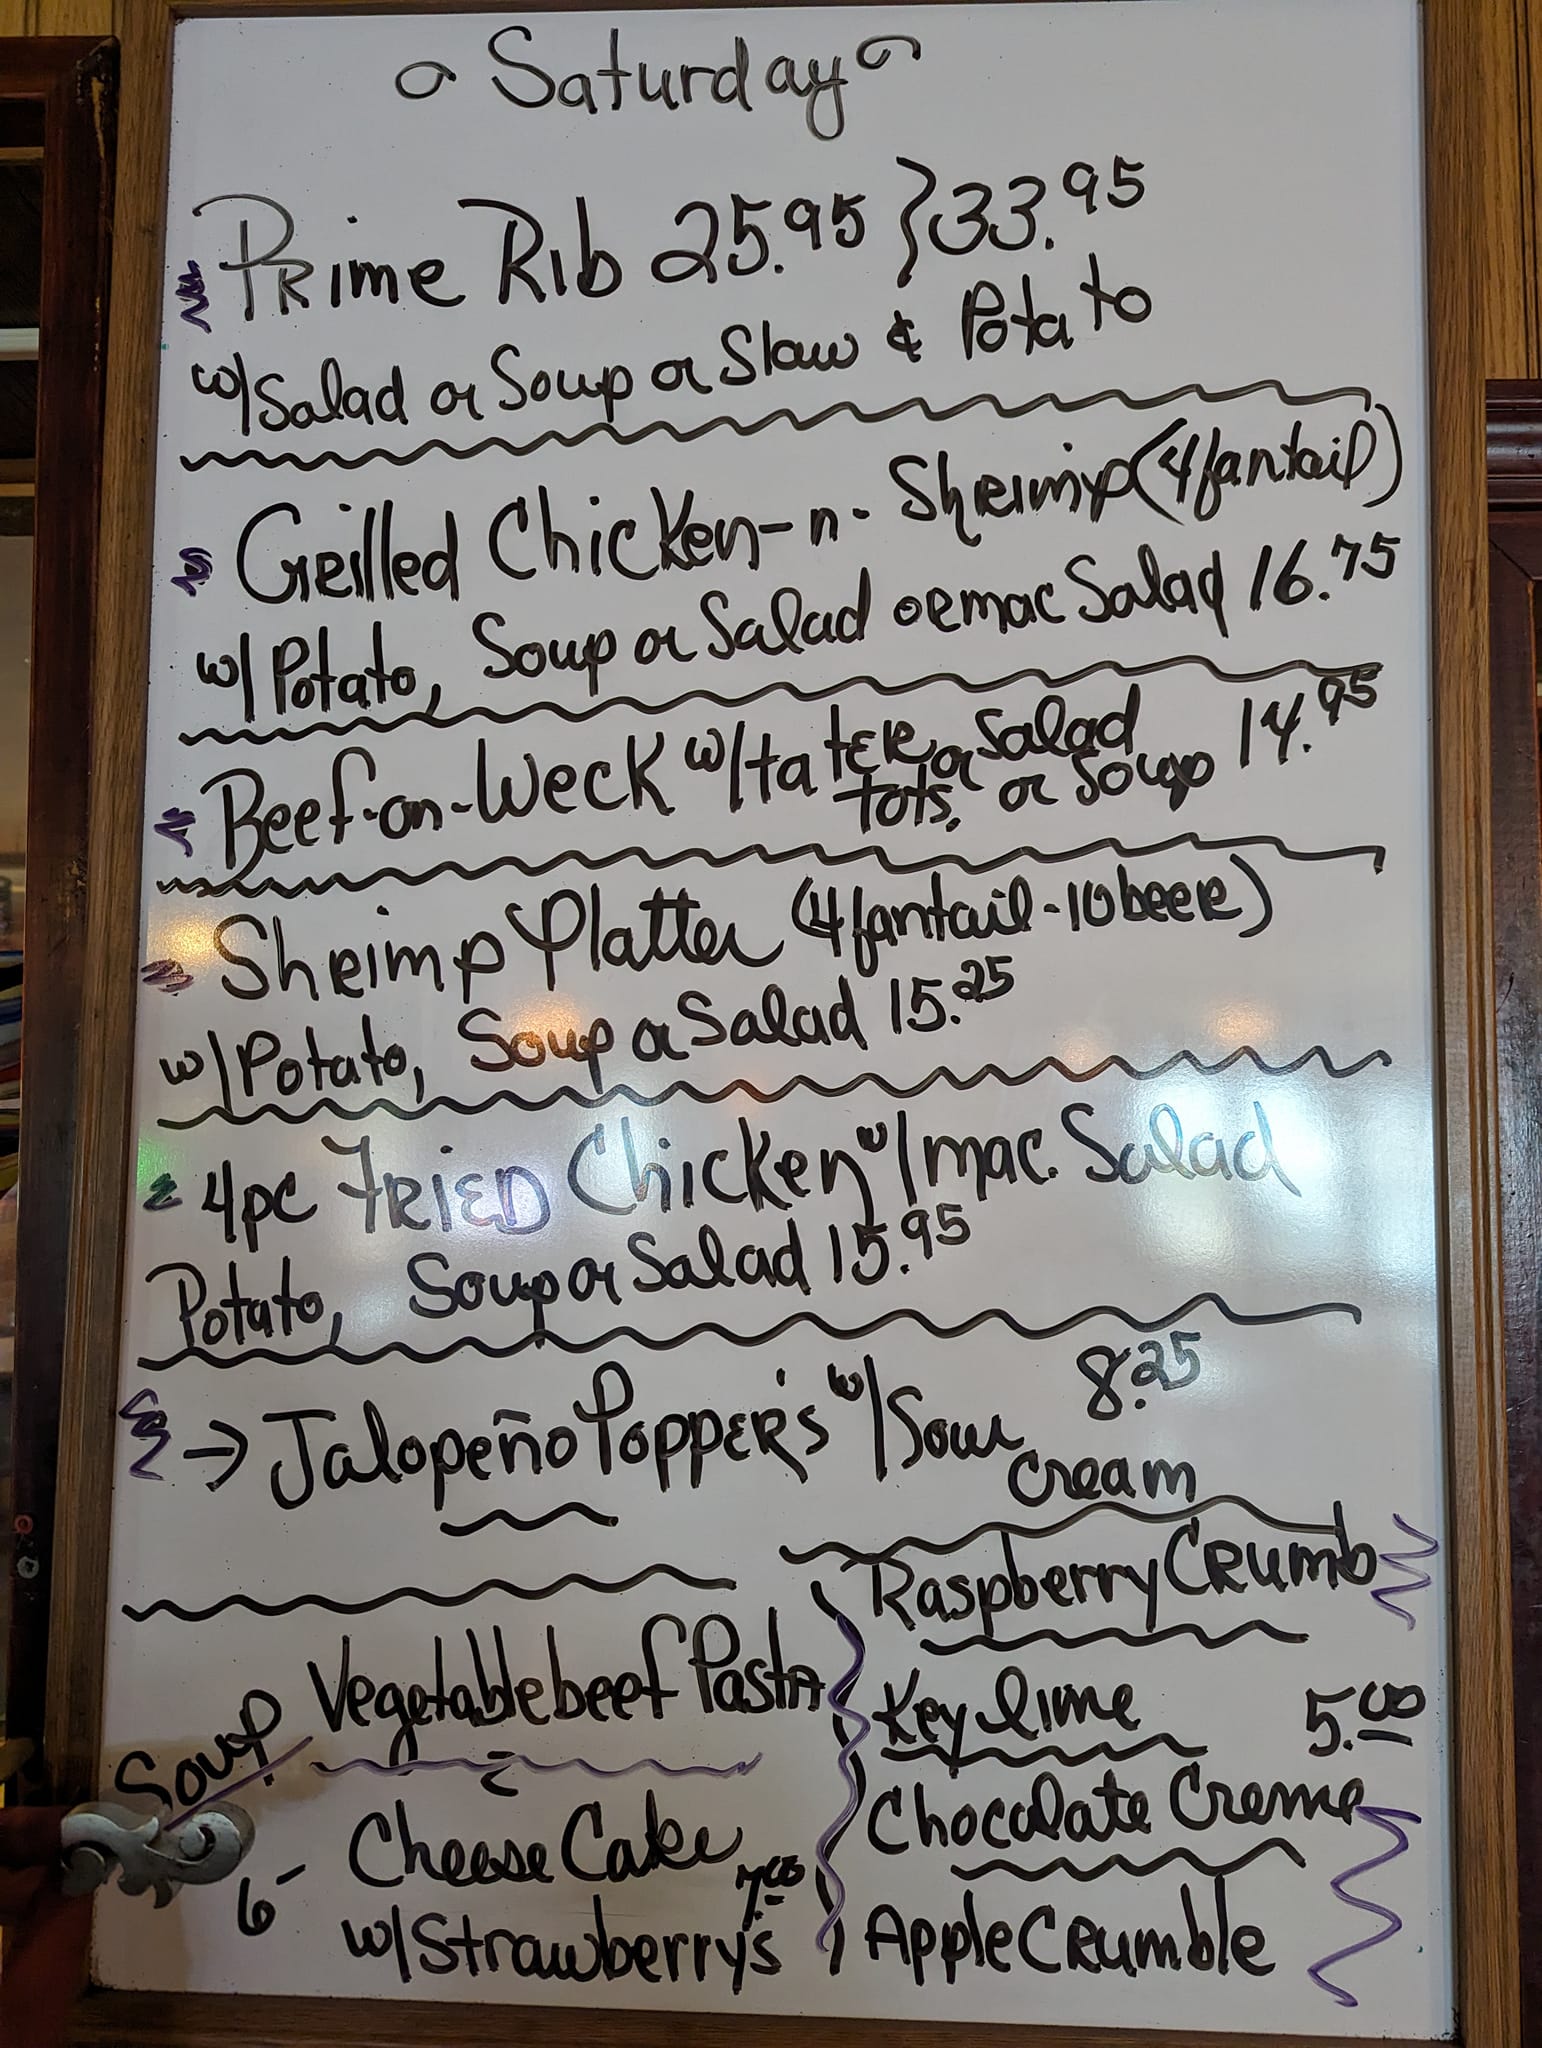 Saturday
Prime Rib 25.95 } 33.95
w/Salad or Soup or Slaw & Potato
Grilled Chicken-n-Shrimp (4 fantail)
w/Potato, Soup or Salad or mac Salad 16.75
Beef-on-Weck w/tater or Salad 14.95
tots, or Soup
Shrimp Platter (4 fantail-10 beer)
w/Potato, Soup or Salad 15.25
4pc Fried Chicken w/mac. Salad
Potato, Soup or Salad 15.95
→ Jalapeño Popper's w/Sour 8.25
Cream
Soup
Vegetable beef Pasta
6-
Cheese Cake 7.00
w/Strawberry's
Raspberry Crumb
Key lime 5.00
Chocolate Creme
Apple Crumble